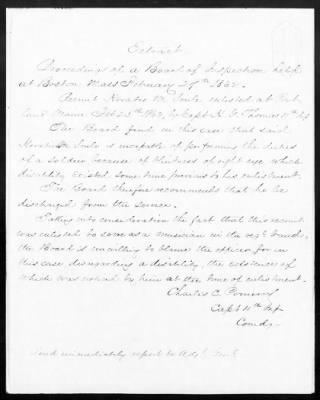 Extract
Proceedings of a Board of Inspection held
at Boston Mass February 27th 1862.
Recruit Horatio M. Soule enlisted at Port
land Maine Feb 25th 1862, by Capt H. G. Thomas 11th Inf
The Board find in this case that said
Horatio M. Soule is incapable of performing the duties
of a soldier because of blindness of right eye which
disability existed some time previous to his enlistment.
The Board therefore recommends that he be
discharged from the service.
Taking into consideration the fact that this recruit
was enlisted to serve as a musician in the regt bands,
the Board is unwilling to blame the officer for in
this case disregarding a disability, the existence of
which was noted by him at the time of enlistment.
Charles C. Pomeroy
Capt 11th Inf
Comdg
Send immediately report to Adjt Genl